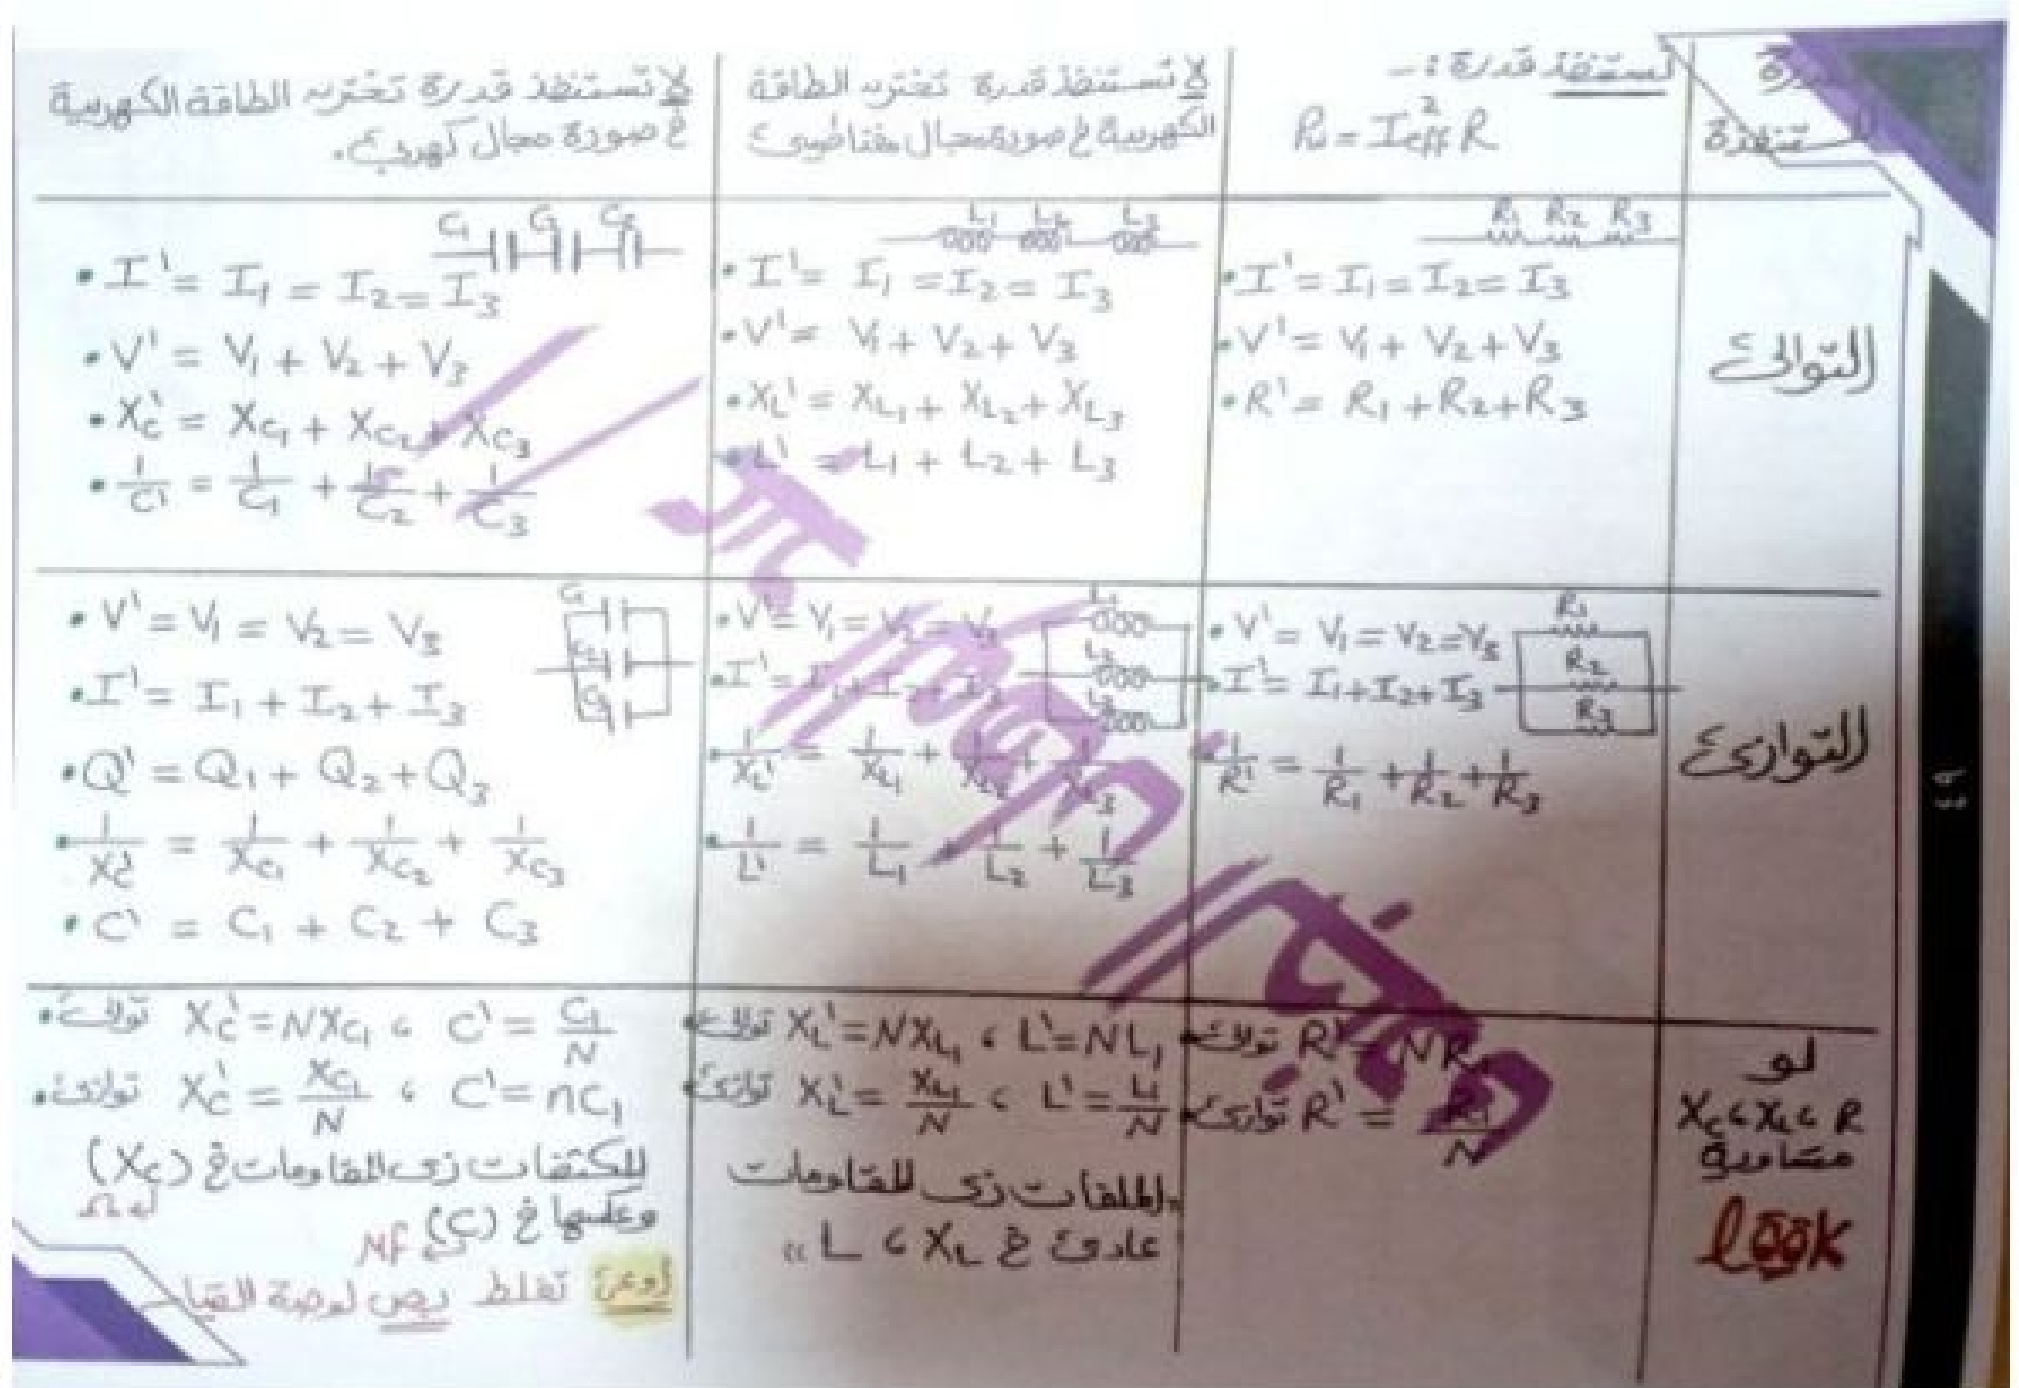 القدرة
المستنفذة
تستنفذ قدرة :-
Pw = Ieff² R
لا تستنفذ قدرة تختزن الطاقة
الكهربية في صورة مجال مغناطيسي
لا تستنفذ قدرة تختزن الطاقة الكهربية
في صورة مجال كهربي.
التوالي
R₁ R₂ R₃
• I' = I₁ = I₂ = I₃
• V' = V₁ + V₂ + V₃
• R' = R₁ + R₂ + R₃
L₁ L₂ L₃
• I' = I₁ = I₂ = I₃
• V' = V₁ + V₂ + V₃
• XL' = XL₁ + XL₂ + XL₃
• L' = L₁ + L₂ + L₃
C₁ C₂
• I' = I₁ = I₂ = I₃
• V' = V₁ + V₂ + V₃
• Xc' = Xc₁ + Xc₂ + Xc₃
• 1/C' = 1/C₁ + 1/C₂ + 1/C₃
التوازي
R₁
R₂
R₃
• V' = V₁ = V₂ = V₃
• I' = I₁ + I₂ + I₃
• 1/R' = 1/R₁ + 1/R₂ + 1/R₃
L₁
L₂
L₃
• V' = V₁ = V₂ = V₃
• I' = I₁ + I₂ + I₃
• 1/XL' = 1/XL₁ + 1/XL₂ + 1/XL₃
• 1/L' = 1/L₁ + 1/L₂ + 1/L₃
C₁
C₂
• V' = V₁ = V₂ = V₃
• I' = I₁ + I₂ + I₃
• Q' = Q₁ + Q₂ + Q₃
• 1/Xc' = 1/Xc₁ + 1/Xc₂ + 1/Xc₃
• C' = C₁ + C₂ + C₃
لو
Xc ، XL ، R
متساوية
look
• توالي R' = NR₁
• توازي R' = R₁/N
• توالي XL' = NXL₁ ، L' = NL₁
• توازي XL' = XL₁/N ، L' = L₁/N
"الملفات زي المقاومات
عادي في XL ، L"
• توالي Xc' = NXc₁ ، C' = C₁/N
• توازي Xc' = Xc₁/N ، C' = nC₁
المكثفات زي المقاومات في (Xc)
Ω
وعكسها في (C)
μf
اوعى تغلط بص لوحدة